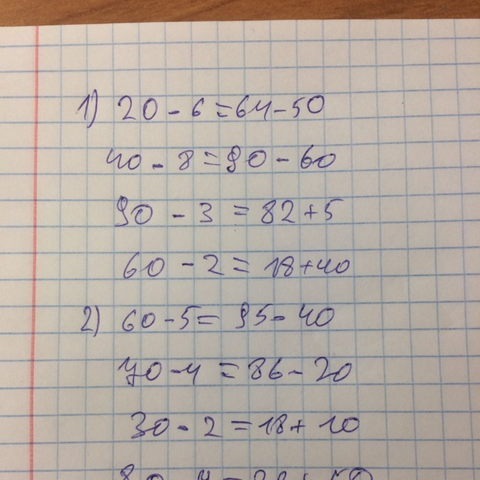 1) 20 - 6 = 64 - 50
40 - 8 = 90 - 60
90 - 3 = 82 + 5
60 - 2 = 18 + 40
2) 60 - 5 = 95 - 40
70 - 4 = 86 - 20
30 - 2 = 18 + 10